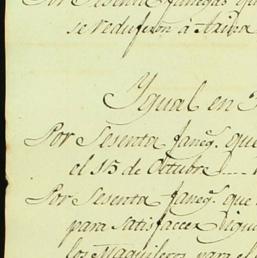 Por Sesenta fanegas que
se redujeron á Arina
Ygual en
Por Sesenta faneg.s que
el 15 de Octubre
Por Sesenta faneg.s que
para Satisfaccer
los Maquileros para el